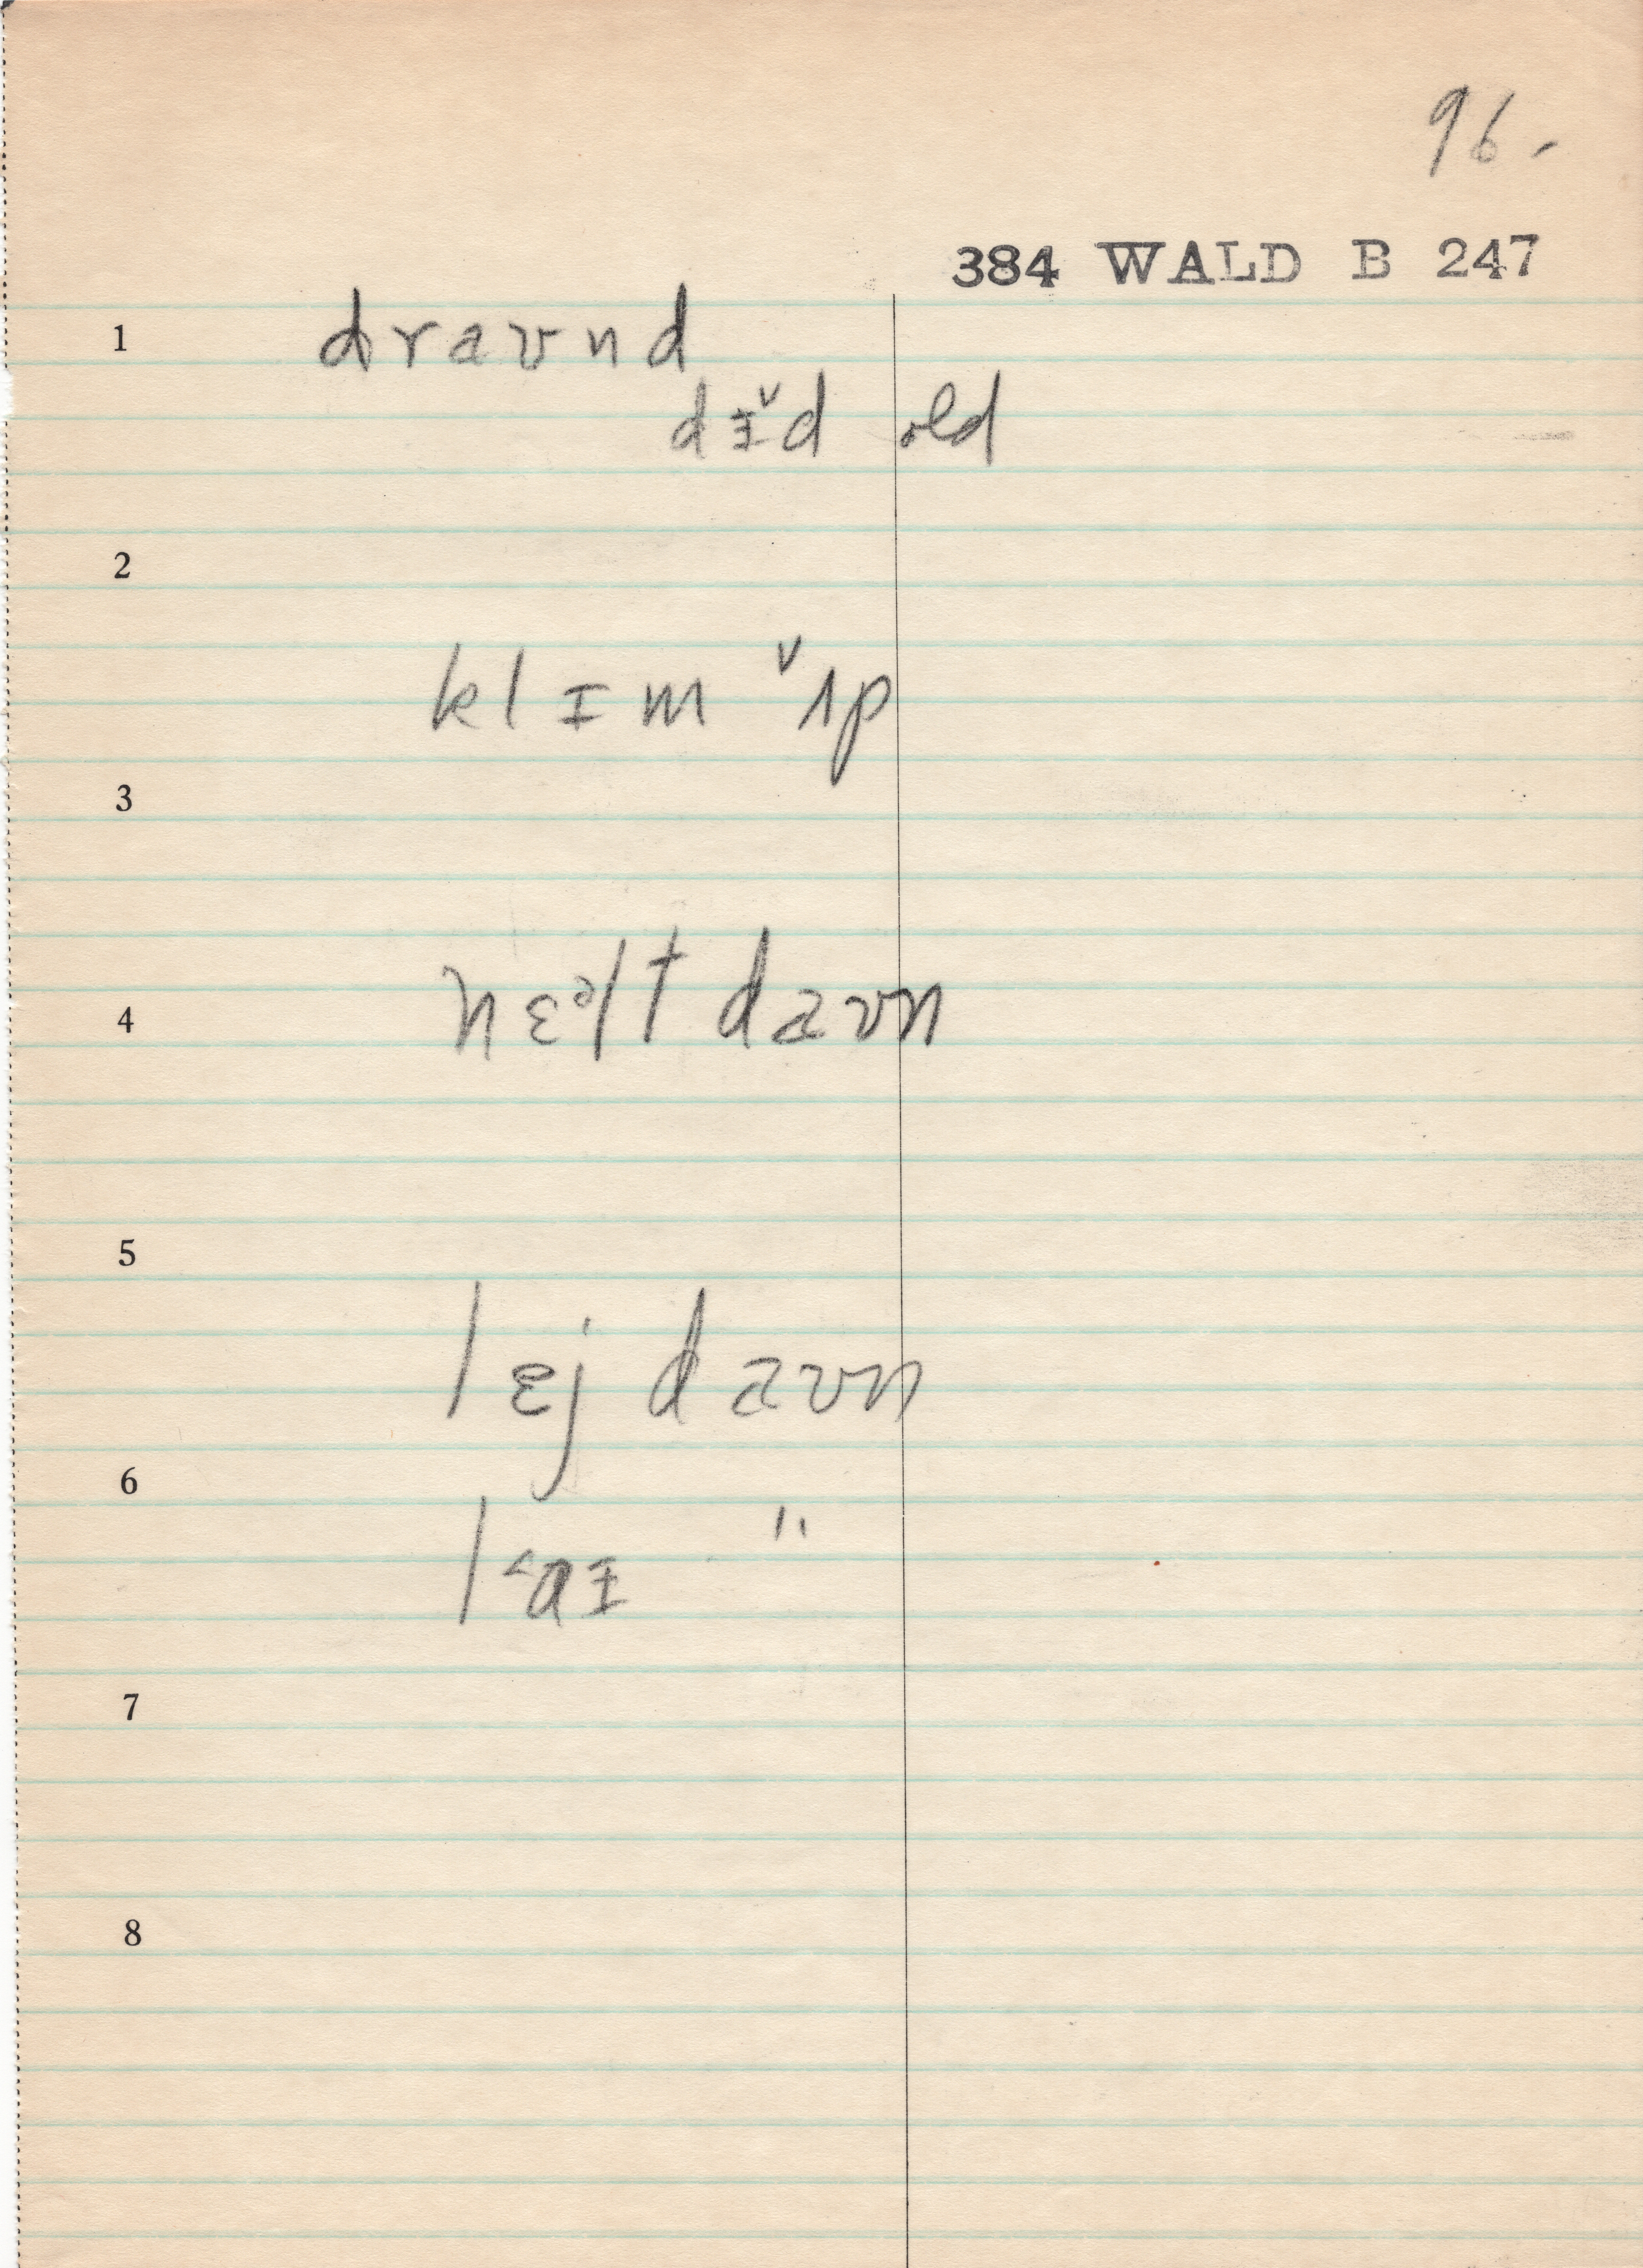 96.
384 WALD B 247
1 dravnd
dɪ̌d old
2
klɪm ˇʌp
3
nɛəlt davn
4
5
lɛj davn
6
l<aɪ "
7
8